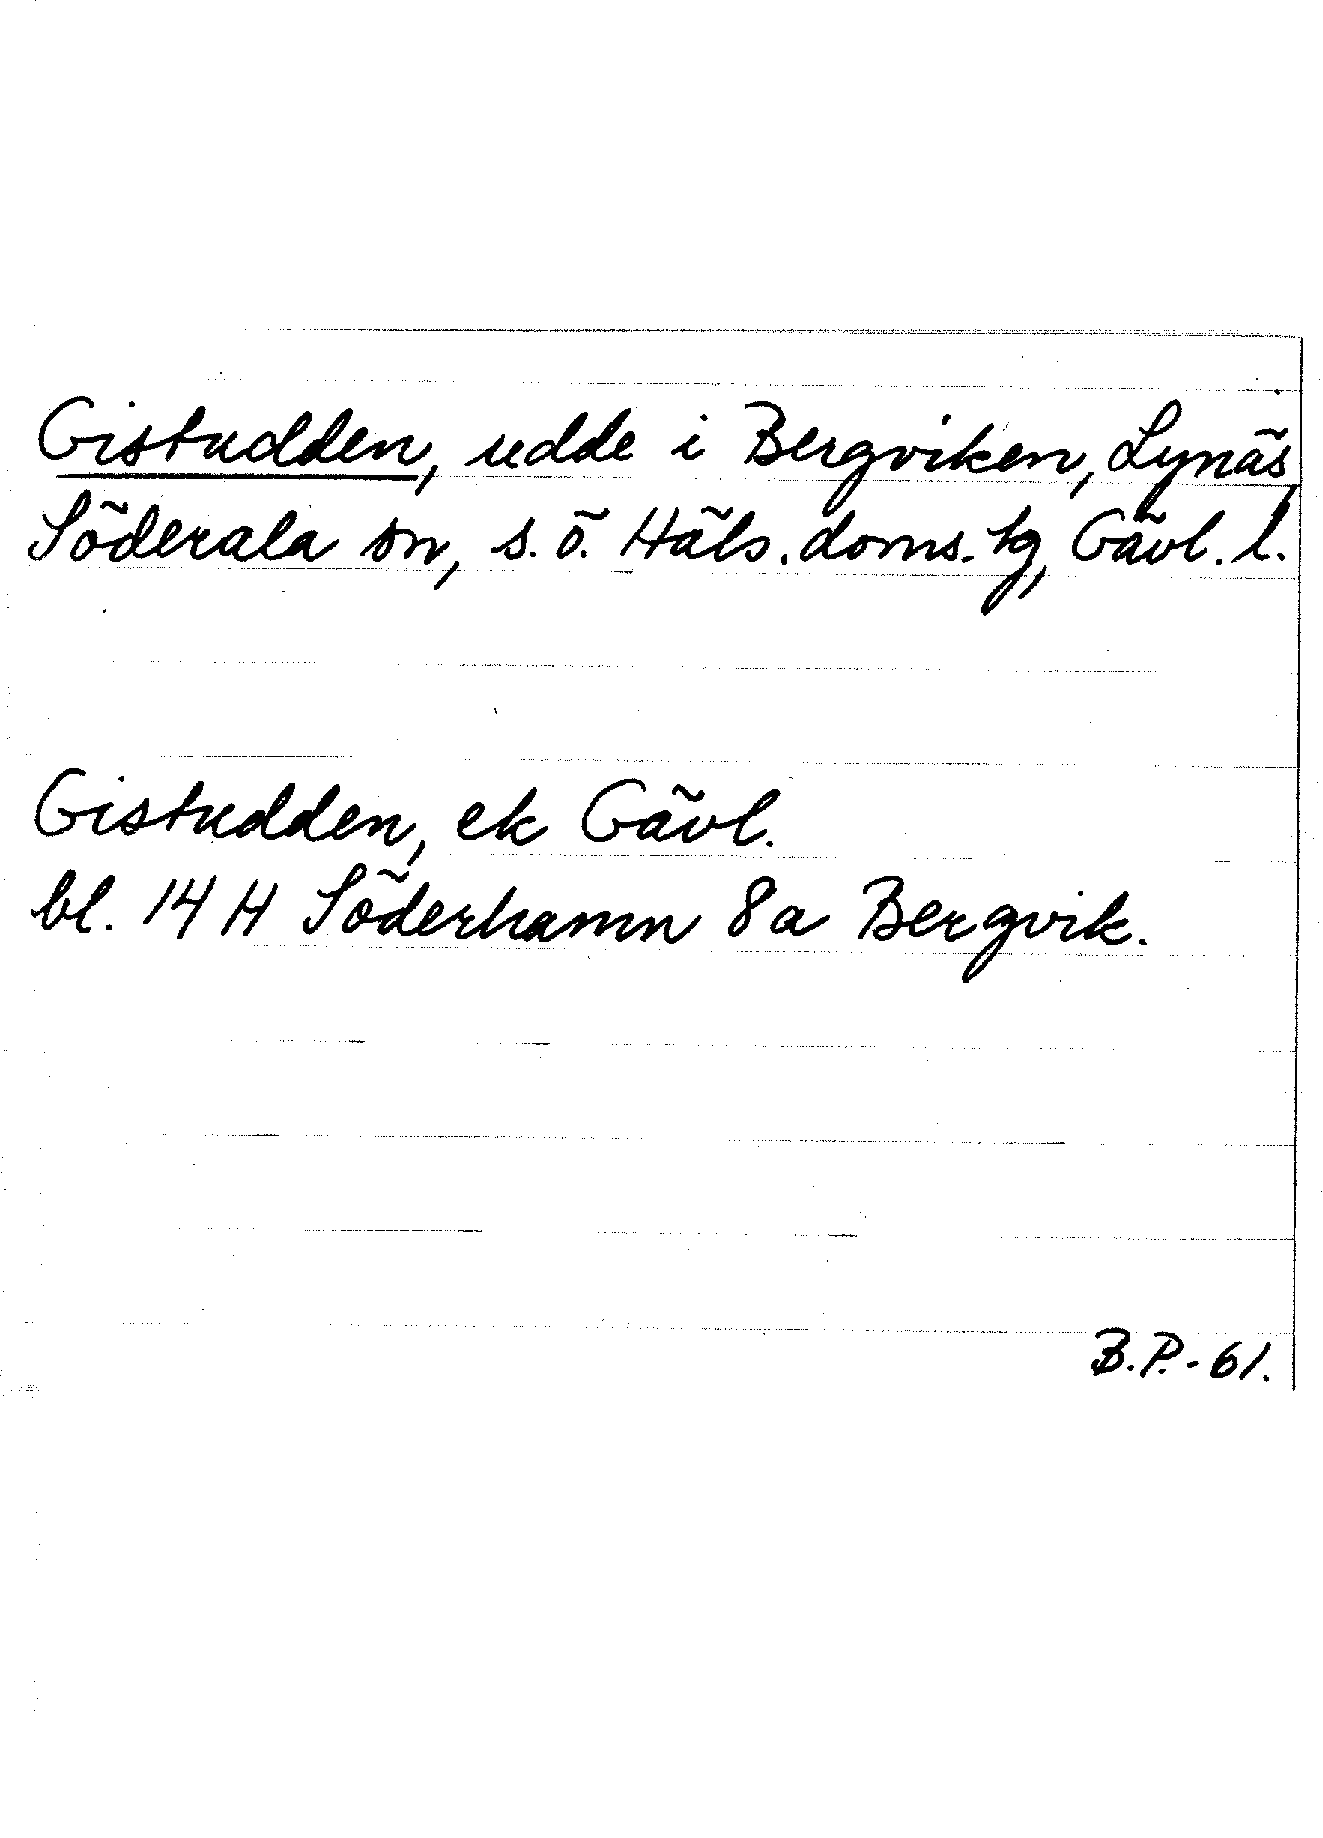 Gistudden, udde i Bergviken, Lynäs,
Söderala sn, s. ö. Häls. doms. tg, Gävl. l.
Gistudden, ek Gävl.
bl. 14 H Söderhamn 8a Bergvik.
B.P.-61.